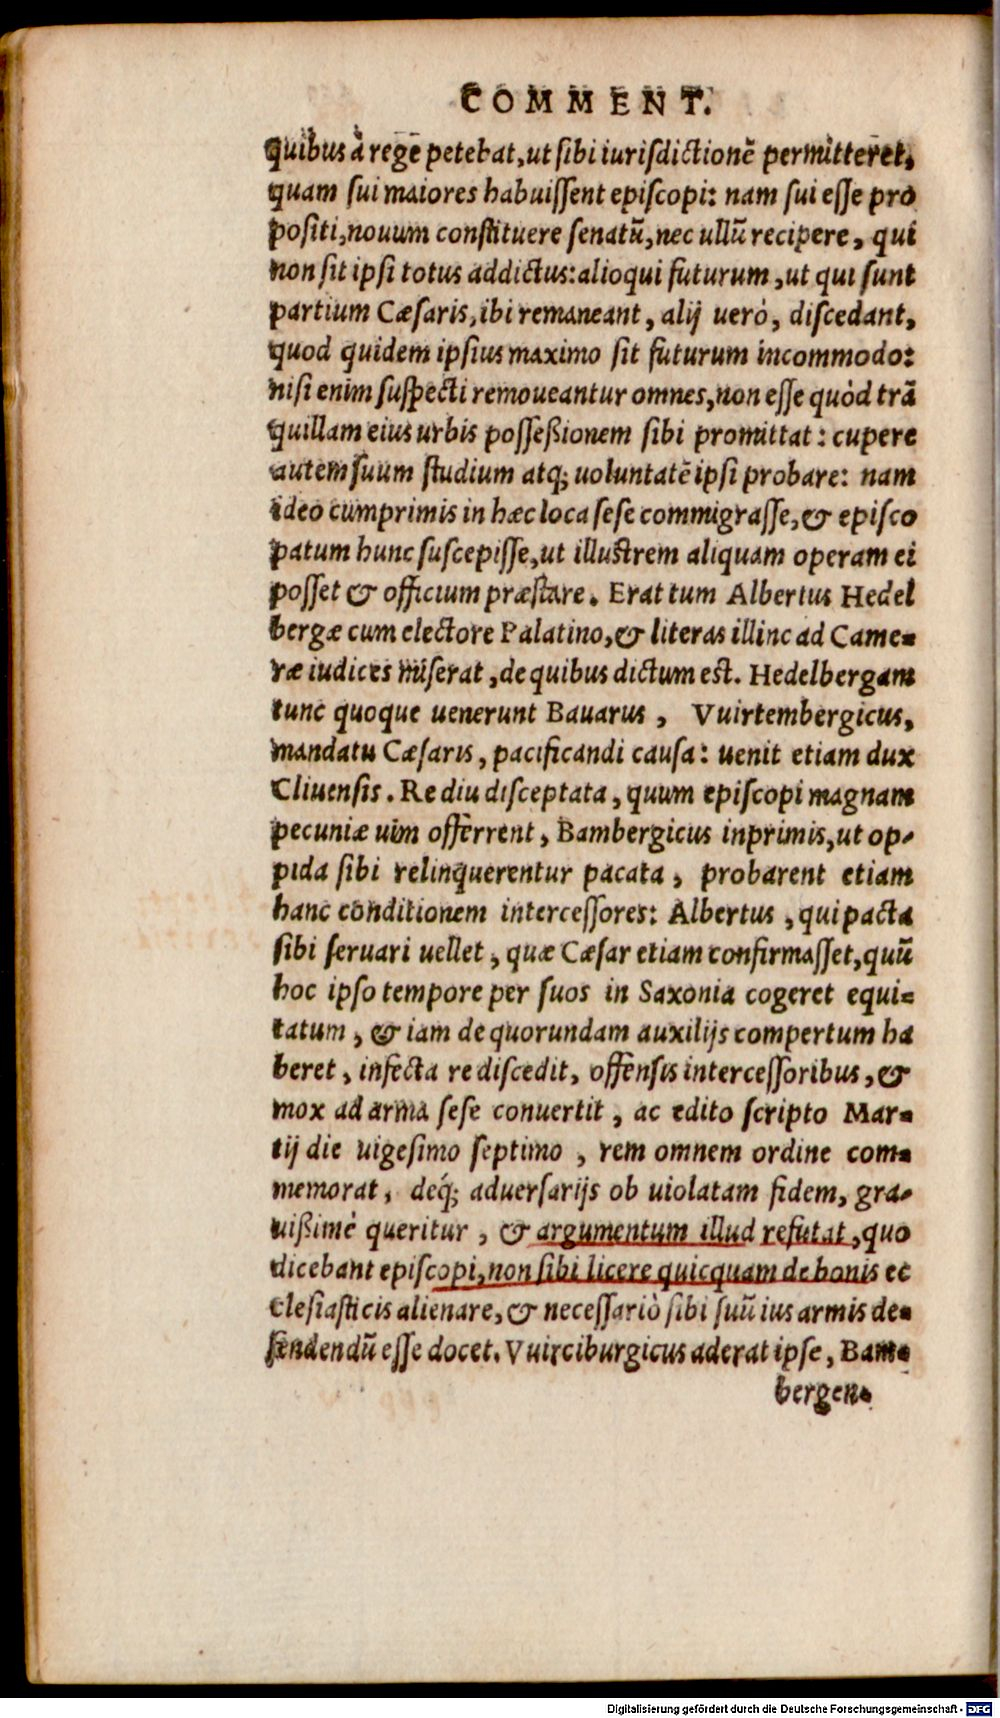 COMMENT.
quibus à rege petebat, ut sibi iurisdictionẽ permitteret,
quam sui maiores habuissent episcopi: nam sui esse pro
positi, nouum constituere senatũ, nec ullũ recipere, qui
non sit ipsi totus addictus: alioqui futurum, ut qui sunt
partium Cæsaris, ibi remaneant, alij uerò, discedant,
quod quidem ipsius maximo sit futurum incommodo:
nisi enim suspecti remoueantur omnes, non esse quòd trã
quillam eius urbis possessionem sibi promittat: cupere
autem suum studium atq; uoluntatẽ ipsi probare: nam
ideo cumprimis in hæc loca sese commigrasse, & episco
patum hunc suscepisse, ut illustrem aliquam operam ei
posset & officium præstare. Erat tum Albertus Hedel
bergæ cum electore Palatino, & literas illinc ad Came-
ræ iudices miserat, de quibus dictum est. Hedelbergam
tunc quoque uenerunt Bauarus, Vuirtembergicus,
mandatu Cæsaris, pacificandi causa: uenit etiam dux
Cliuensis. Re diu disceptata, quum episcopi magnam
pecuniæ uim offerrent, Bambergicus inprimis, ut op-
pida sibi relinquerentur pacata, probarent etiam
hanc conditionem intercessores: Albertus, qui pacta
sibi seruari uellet, quæ Cæsar etiam confirmasset, quũ
hoc ipso tempore per suos in Saxonia cogeret equi-
tatum, & iam de quorundam auxilijs compertum ha
beret, infecta re discedit, offensis intercessoribus, &
mox ad arma sese conuertit, ac edito scripto Mar-
tij die uigesimo septimo, rem omnem ordine com-
memorat, deq́; aduersarijs ob uiolatam fidem, gra-
uißimè queritur, & argumentum illud refutat, quo
dicebant episcopi, non sibi licere quicquam de bonis ec
clesiasticis alienare, & necessariò sibi suũ ius armis de-
fendendũ esse docet. Vuirciburgicus aderat ipse, Bam-
bergen-
Digitalisierung gefördert durch die Deutsche Forschungsgemeinschaft - DFG